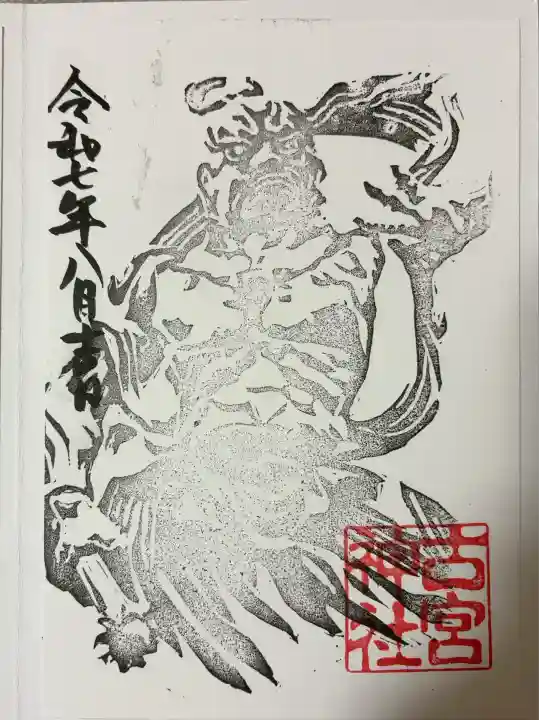 令和七年八月吉日
古宮
神社